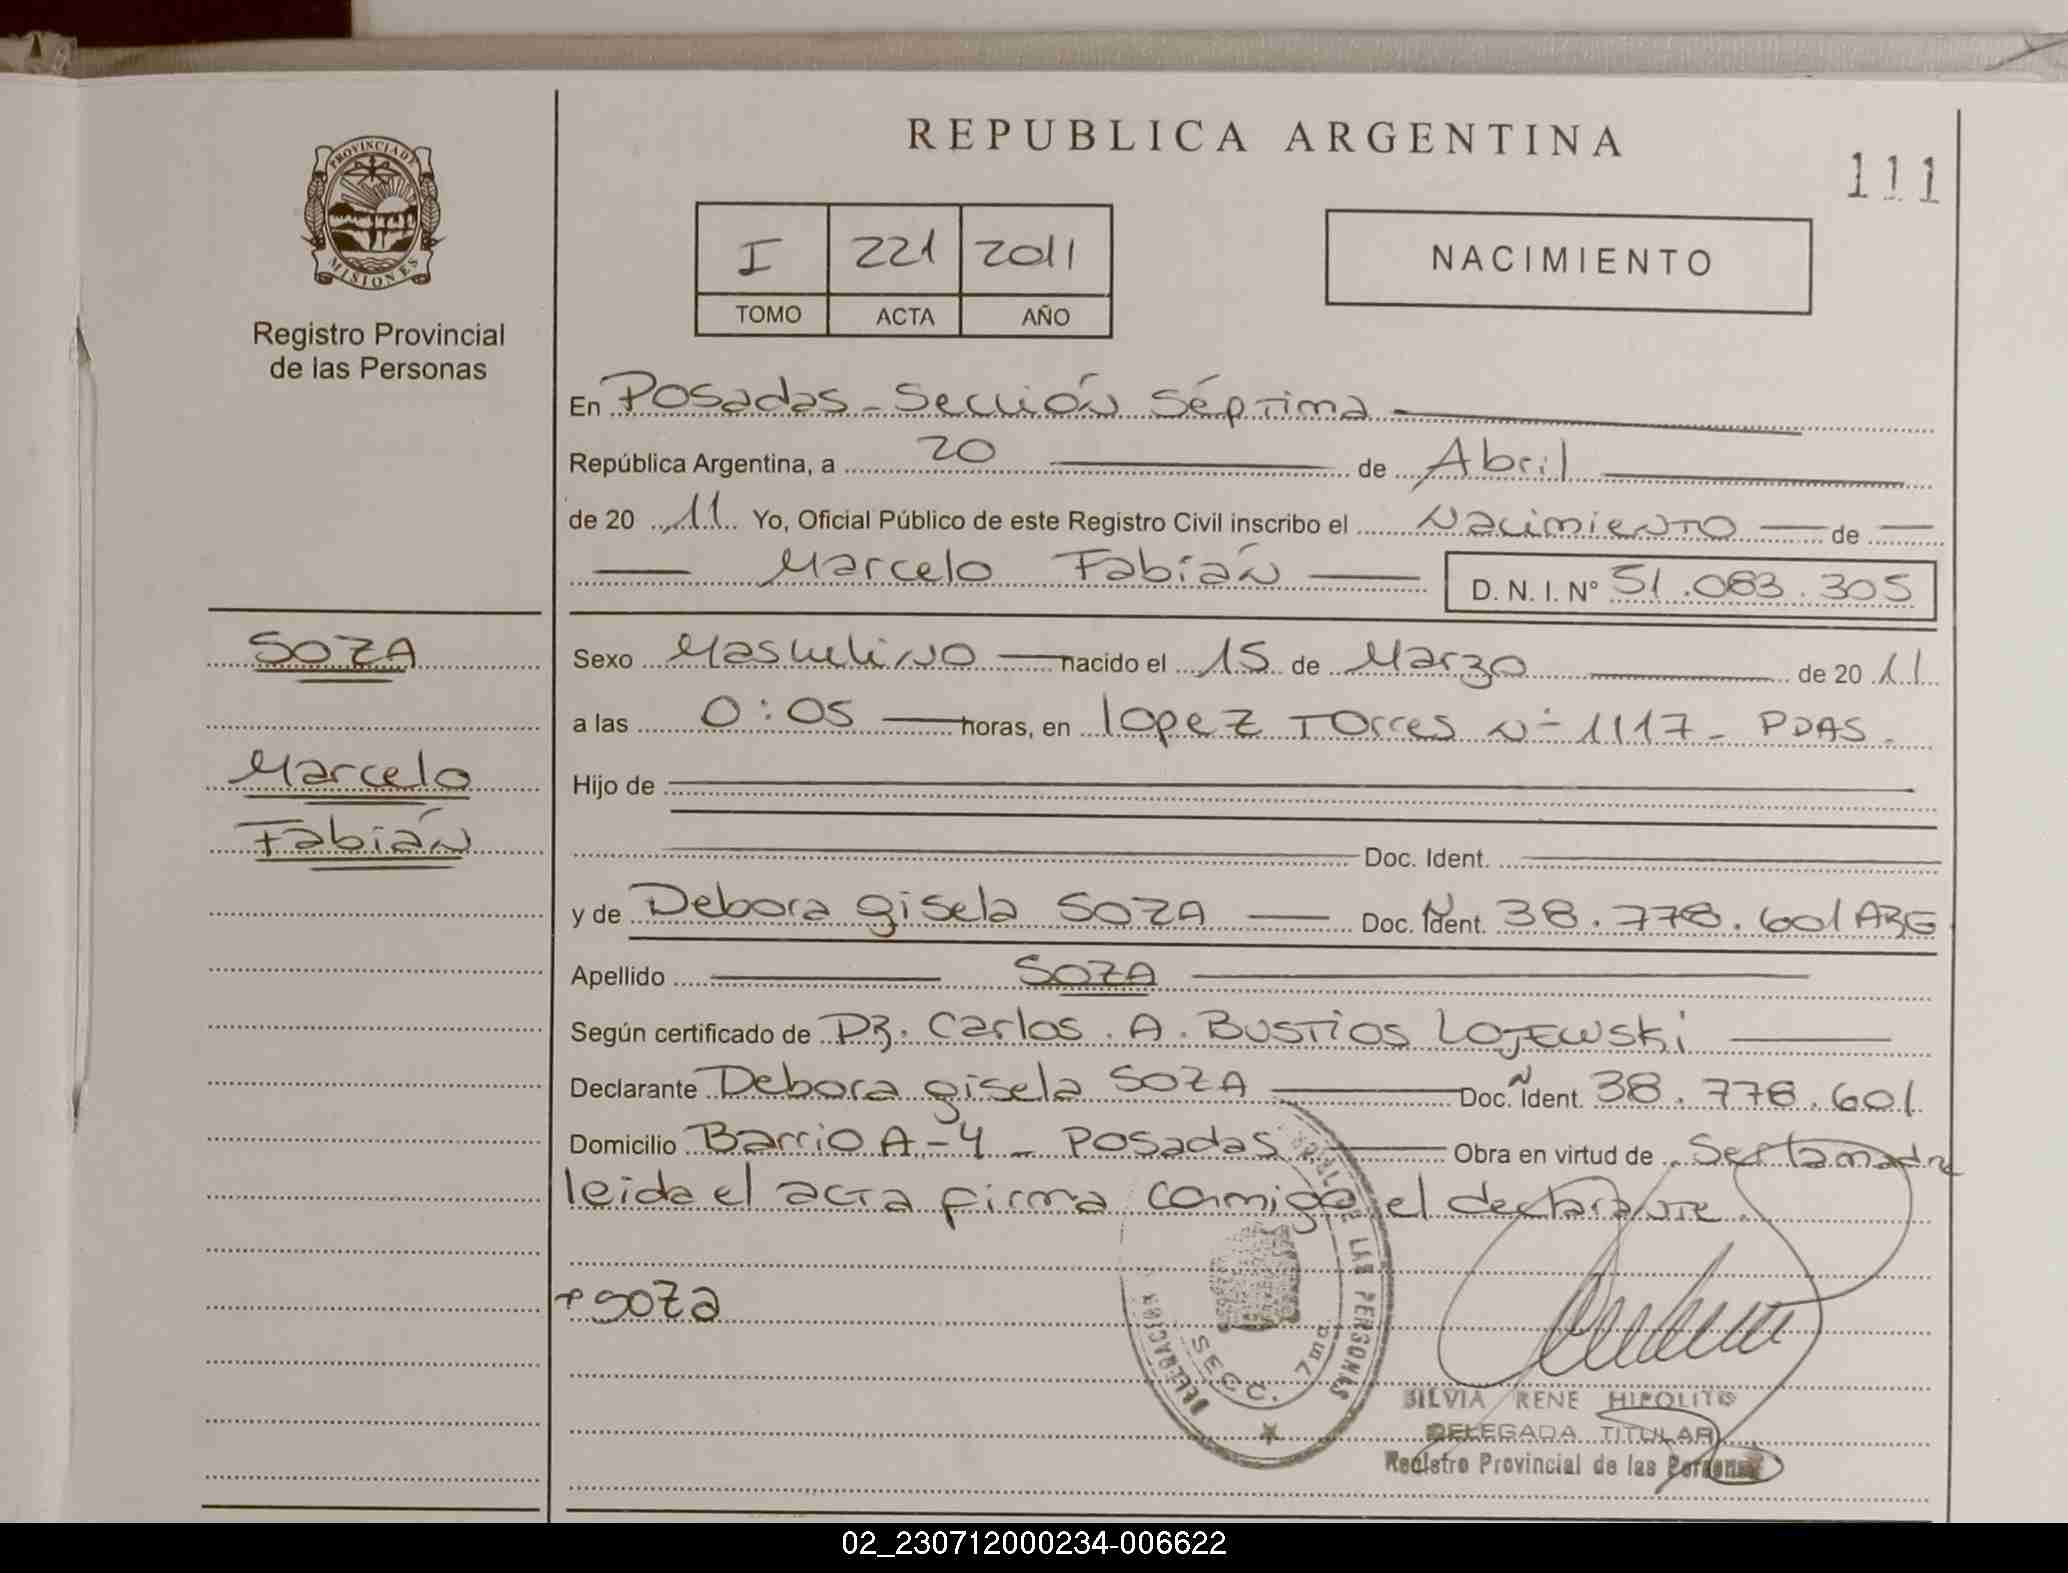 PROVINCIA DE
MISIONES
Registro Provincial
de las Personas
SOZA
Marcelo
Fabián
REPUBLICA ARGENTINA
111
I 221 2011
TOMO ACTA AÑO
NACIMIENTO
En Posadas - Sección Séptima
República Argentina, a 20 de Abril
de 20 11 Yo, Oficial Público de este Registro Civil inscribo el Nacimiento de
Marcelo Fabián D. N. I. Nº 51.083.305
Sexo Masculino nacido el 15 de Marzo de 20 11
a las 0:05 horas, en Lopez Torres Nº 1117 - PDAS.
Hijo de
Doc. Ident.
y de Debora gisela SOZA Doc. Ident. 38.778.601 ARG
Apellido SOZA
Según certificado de DR. Carlos. A. BUSTIOS LOJEWSKI
Declarante Debora gisela SOZA Doc. Ident. 38.778.601
Domicilio Barrio A-4 - Posadas Obra en virtud de Ser la madre
leida el acta firma conmigo el declarante.
SOZA
DELEGACION REGISTRO DE LAS PERSONAS
SECC. 7ma
SILVIA RENE HIPOLITO
DELEGADA TITULAR
Registro Provincial de las Personas
02_230712000234-006622